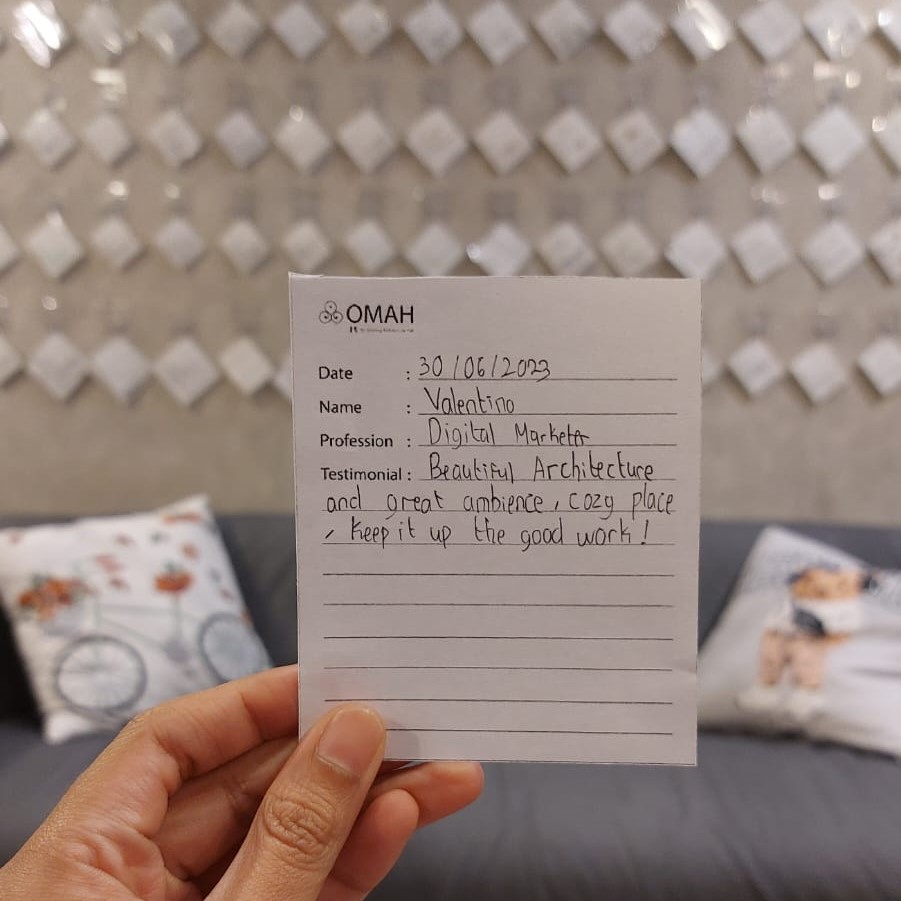 OMAH
Date : 30/06/2023
Name : Valentino
Profession : Digital Marketer
Testimonial : Beautiful Architecture
and great ambience, cozy place
, Keep it up the good work!